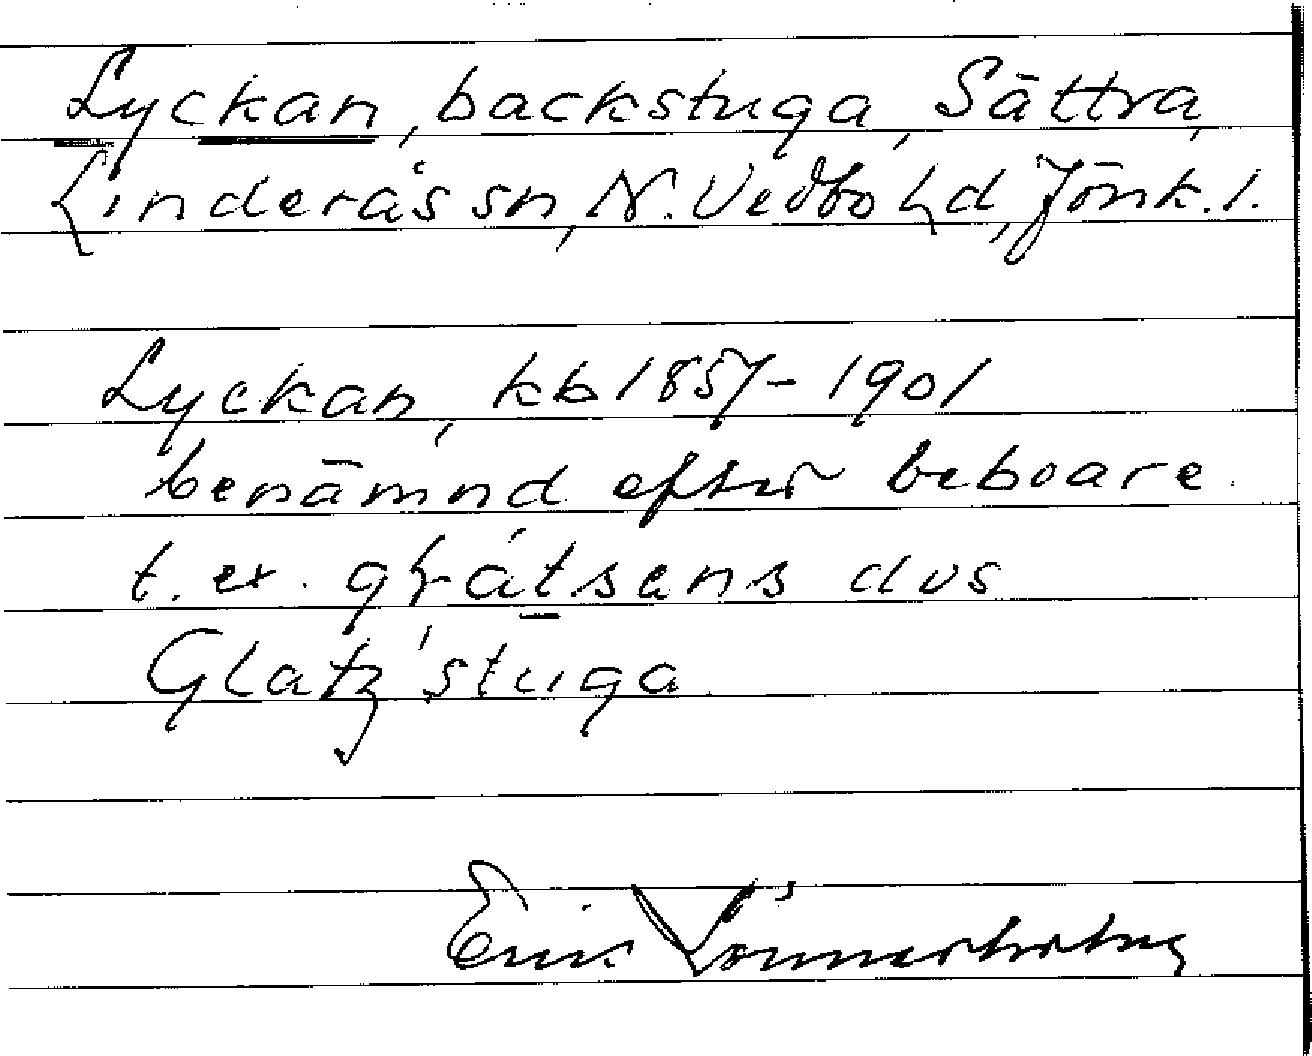 Lyckan, backstuga, Sättra,
Linderås sn, N. Vedbo hd, Jönk. l.
Lyckan, kb 1857-1901
benämnd efter beboare
t. ex.
Glatz' stuga
Erik Lönnerholm